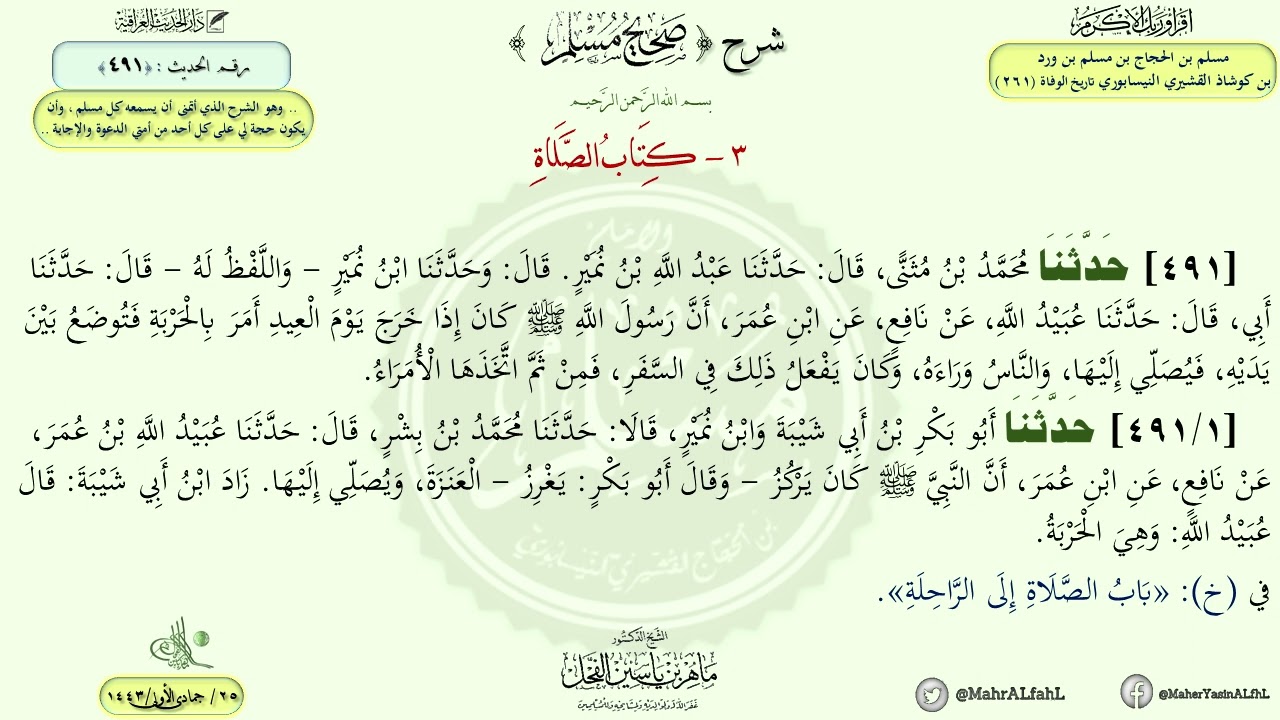 اقرأ وربك الأكرم
مسلم بن الحجاج بن مسلم بن ورد
بن كوشاذ القشيري النيسابوري تاريخ الوفاة (٢٦١)
شرح ﴿صحيح مسلم﴾
دار الحديث العراقية
رقم الحديث : ﴿٤٩١﴾
.. وهو الشرح الذي أتمنى أن يسمعه كل مسلم ، وأن
يكون حجة لي على كل أحد من أمتي الدعوة والإجابة ..
بسم الله الرحمن الرحيم
٣ – كِتَابُ الصَّلَاةِ
[٤٩١] حَدَّثَنَا مُحَمَّدُ بْنُ مُثَنَّى، قَالَ: حَدَّثَنَا عَبْدُ اللَّهِ بْنُ نُمَيْرٍ. قَالَ: وَحَدَّثَنَا ابْنُ نُمَيْرٍ – وَاللَّفْظُ لَهُ – قَالَ: حَدَّثَنَا
أَبِي، قَالَ: حَدَّثَنَا عُبَيْدُ اللَّهِ، عَنْ نَافِعٍ، عَنِ ابْنِ عُمَرَ، أَنَّ رَسُولَ اللَّهِ ﷺ كَانَ إِذَا خَرَجَ يَوْمَ الْعِيدِ أَمَرَ بِالْحَرْبَةِ فَتُوضَعُ بَيْنَ
يَدَيْهِ، فَيُصَلِّي إِلَيْهَا، وَالنَّاسُ وَرَاءَهُ، وَكَانَ يَفْعَلُ ذَلِكَ فِي السَّفَرِ، فَمِنْ ثَمَّ اتَّخَذَهَا الْأُمَرَاءُ.
[٤٩١/١] حَدَّثَنَا أَبُو بَكْرِ بْنُ أَبِي شَيْبَةَ وَابْنُ نُمَيْرٍ، قَالَا: حَدَّثَنَا مُحَمَّدُ بْنُ بِشْرٍ، قَالَ: حَدَّثَنَا عُبَيْدُ اللَّهِ بْنُ عُمَرَ،
عَنْ نَافِعٍ، عَنِ ابْنِ عُمَرَ، أَنَّ النَّبِيَّ ﷺ كَانَ يَرْكُزُ – وَقَالَ أَبُو بَكْرٍ: يَغْرِزُ – الْعَنَزَةَ، وَيُصَلِّي إِلَيْهَا. زَادَ ابْنُ أَبِي شَيْبَةَ: قَالَ
عُبَيْدُ اللَّهِ: وَهِيَ الْحَرْبَةُ.
في (خ): «بَابُ الصَّلَاةِ إِلَى الرَّاحِلَةِ».
الإمام
مسلم
بن الحجاج القشيري النيسابوري
٢٥ / جمادى الأولى/ ١٤٤٣
الشيخ الدكتور
ماهر بن ياسين الفحل
غفر الله له ولوالديه ولمشايخه وللمسلمين
@MahrALfahL
@MaherYasinALfhL